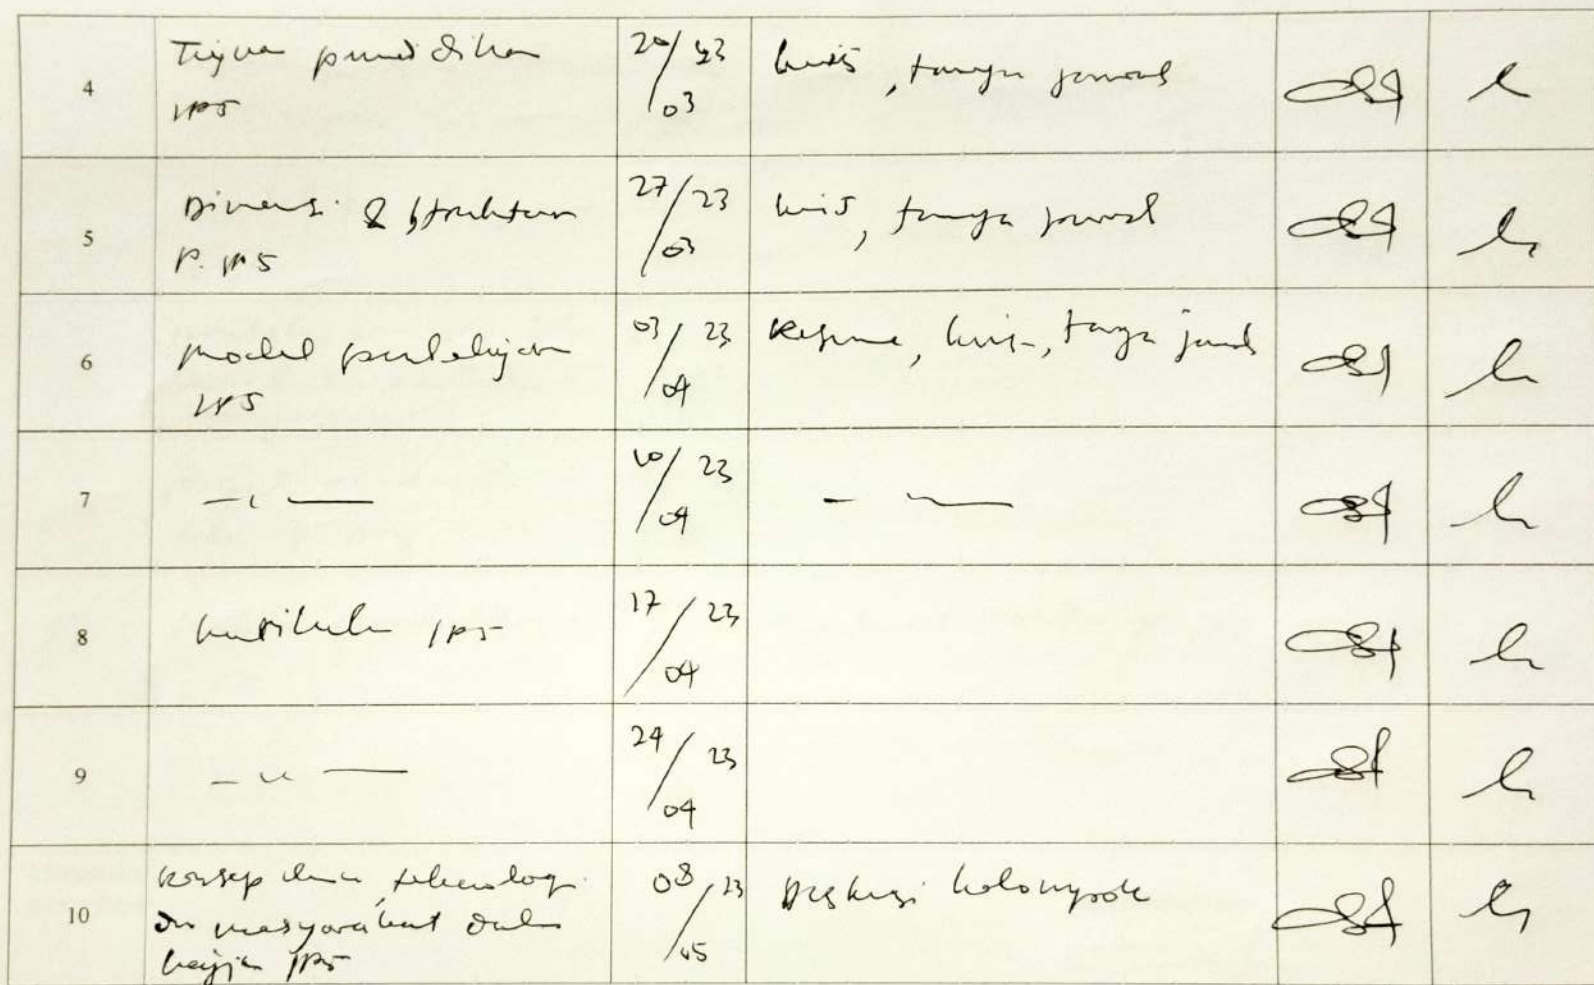 4
Tujuan pendidikan
IPS
20/03 23
kuis, tanya jawab
5
Dimensi & struktur
P. IPS
27/03 23
kuis, tanya jawab
6
model pembelajaran
IPS
03/04 23
Resume, kuis, tanya jawab
7
10/04 23
8
kurikulum IPS
17/04 23
9
24/04 23
10
konsep ilmu, teknologi
dan masyarakat dalam
kajian IPS
08/05 23
Diskusi kelompok